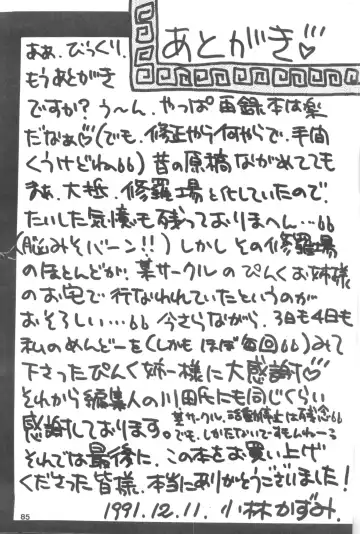 あとがき♡
ああ、びっくり、
もうあとがき
ですか？う〜ん、やっぱ再録本は楽
だなぁ♡（でも、修正やら何やらで、手間
くうけどねぃぃ）昔の原稿ながめてても
まぁ、大抵、修羅場と化していたので、
たいした気憶も残っておりまへん…ぃぃ
（脳みそバーン!!）しかしその修羅場
のほとんどが、某サークルのぴんくお姉様
のお宅で行なわれていたというのが
おそろしい…ぃぃ 今さらながら、3日も4日も
私のめんどーを（しかもほぼ毎回ぃぃ）みて
下さったぴんく姉様に大感謝♡
それから編集人の川田氏にも同じくらい
感謝しております。
某サークル、活動停止は残念ぃぃ
でも、しかたないですもんねーぅ
それでは最後に、この本をお買い上げ
くださった皆様、本当にありがとうございました！
1991.12.11. 小林かずみ.
85